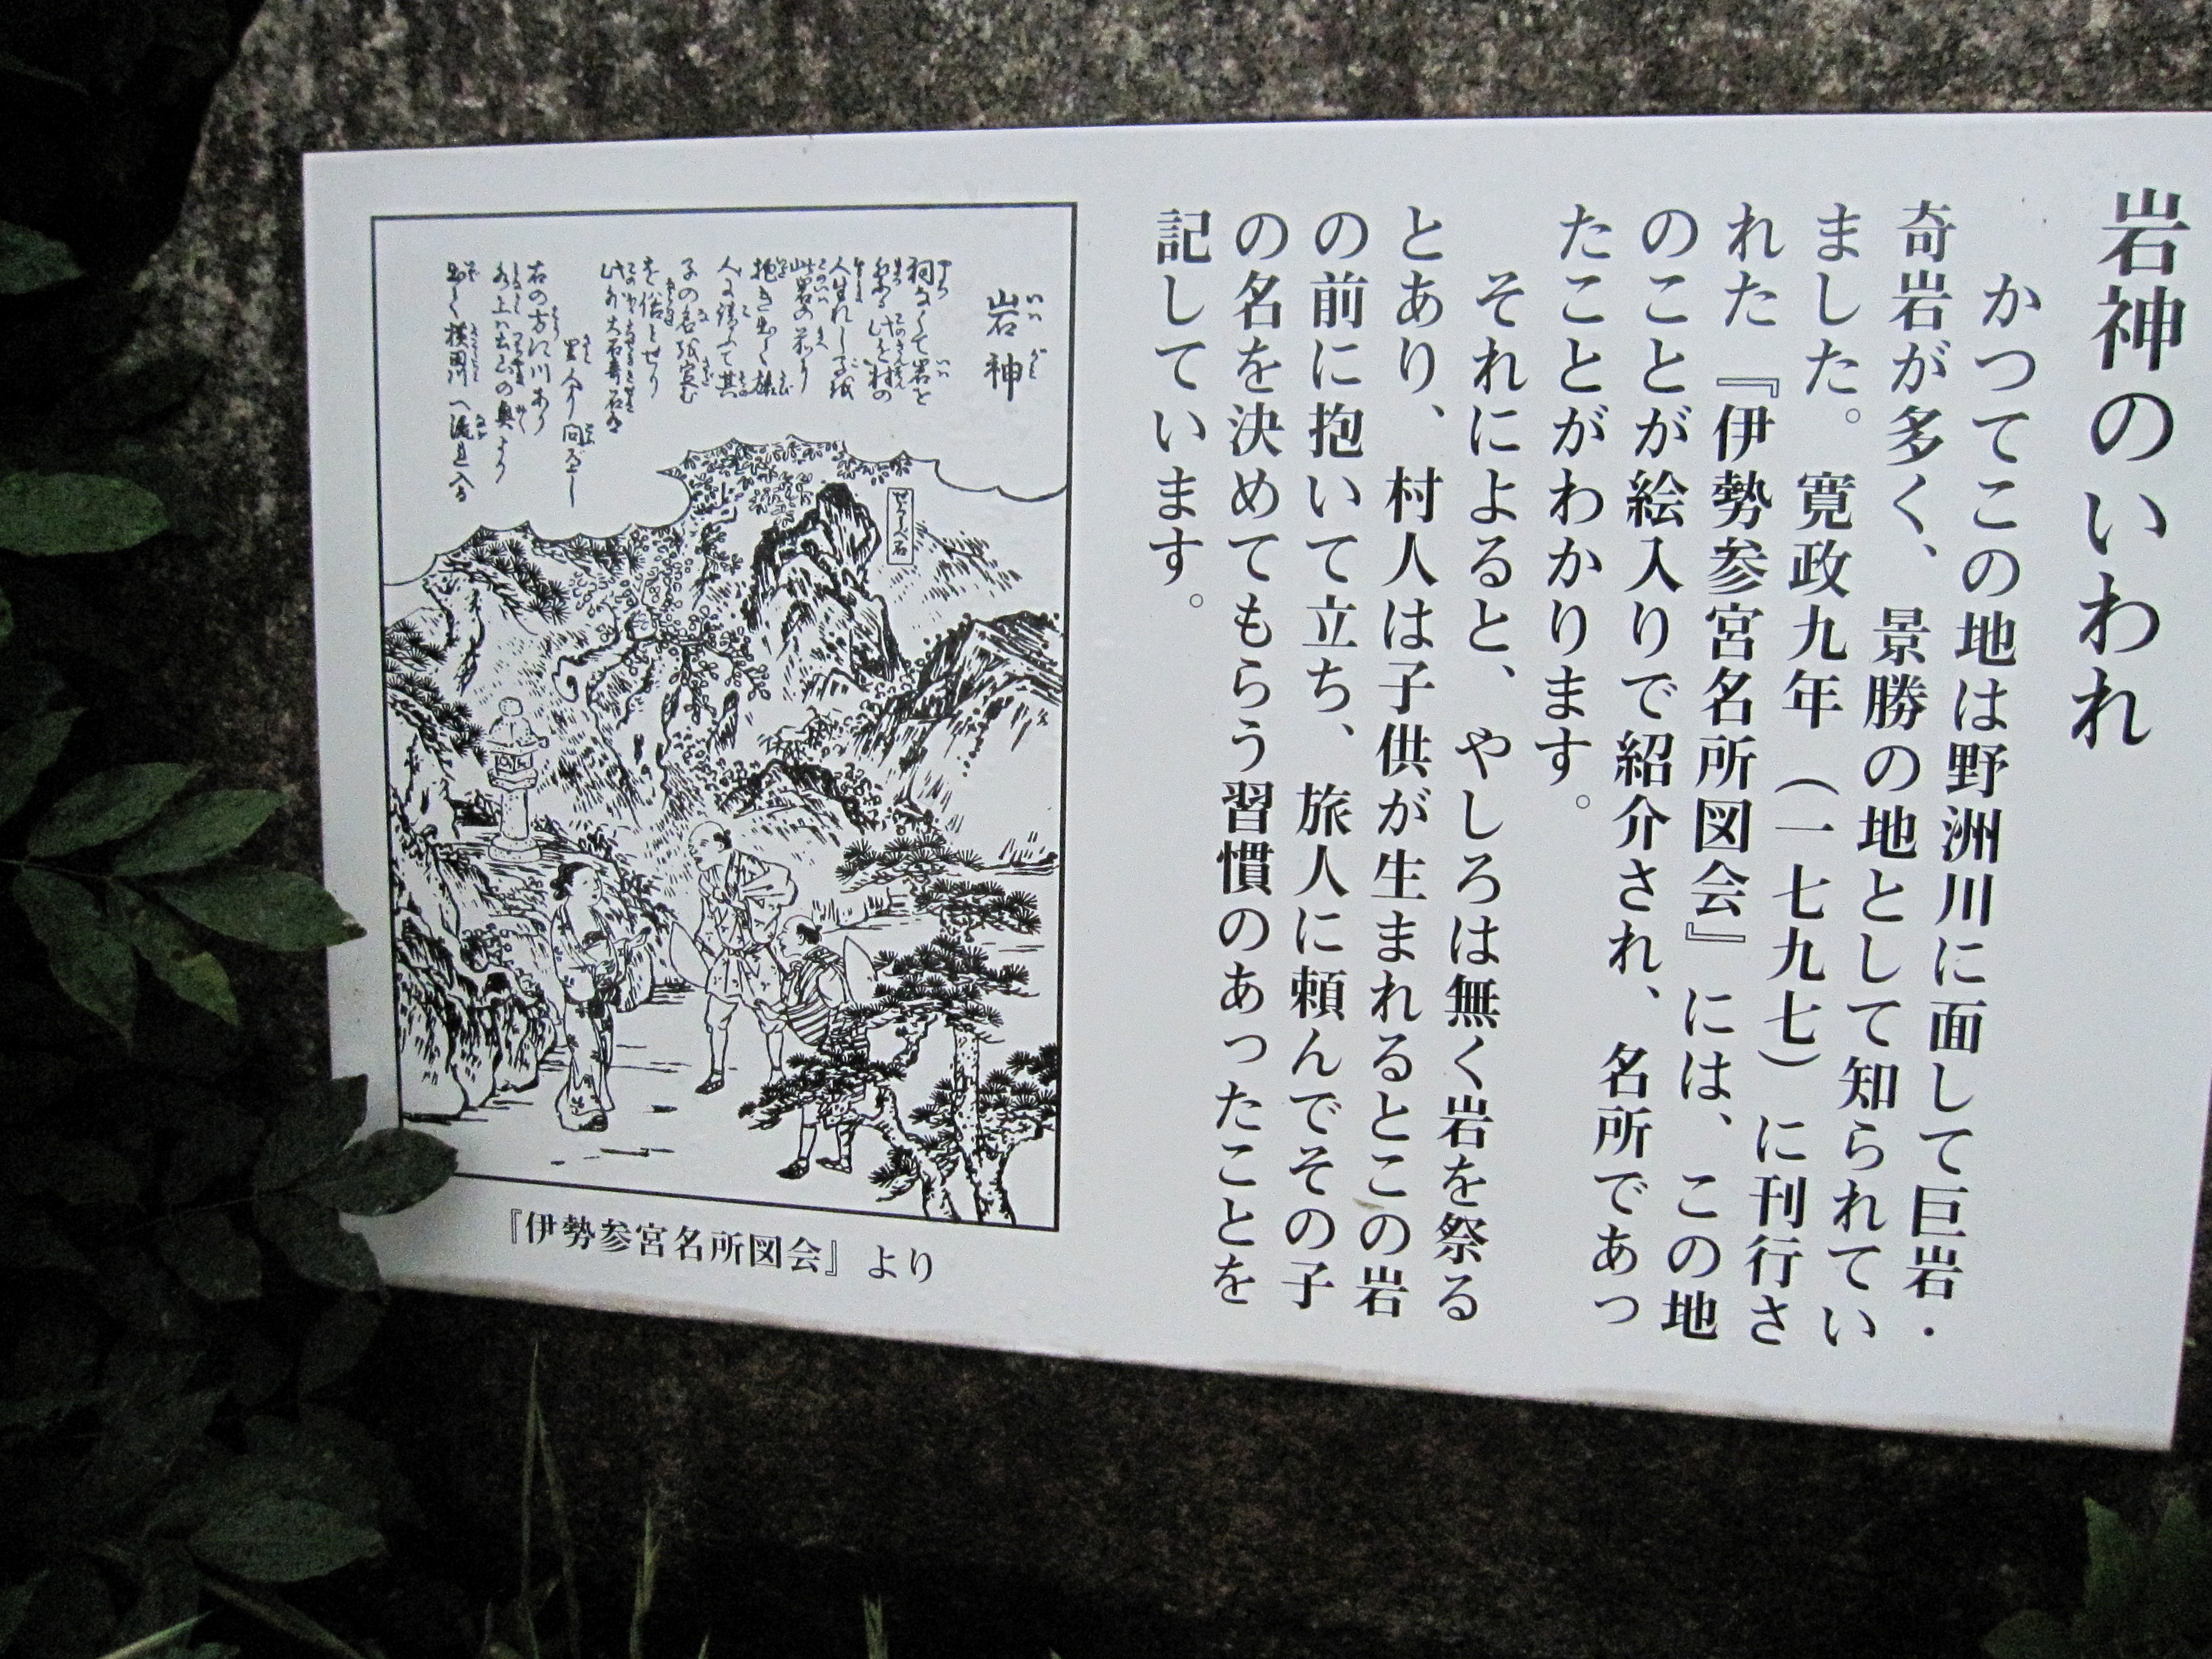 岩神のいわれ
かつてこの地は野洲川に面して巨岩・
奇岩が多く、景勝の地として知られてい
ました。寛政九年（一七九七）に刊行さ
れた『伊勢参宮名所図会』には、この地
のことが絵入りで紹介され、名所であっ
たことがわかります。
それによると、やしろは無く岩を祭る
とあり、村人は子供が生まれるとこの岩
の前に抱いて立ち、旅人に頼んでその子
の名を決めてもらう習慣のあったことを
記しています。
岩神
『伊勢参宮名所図会』より